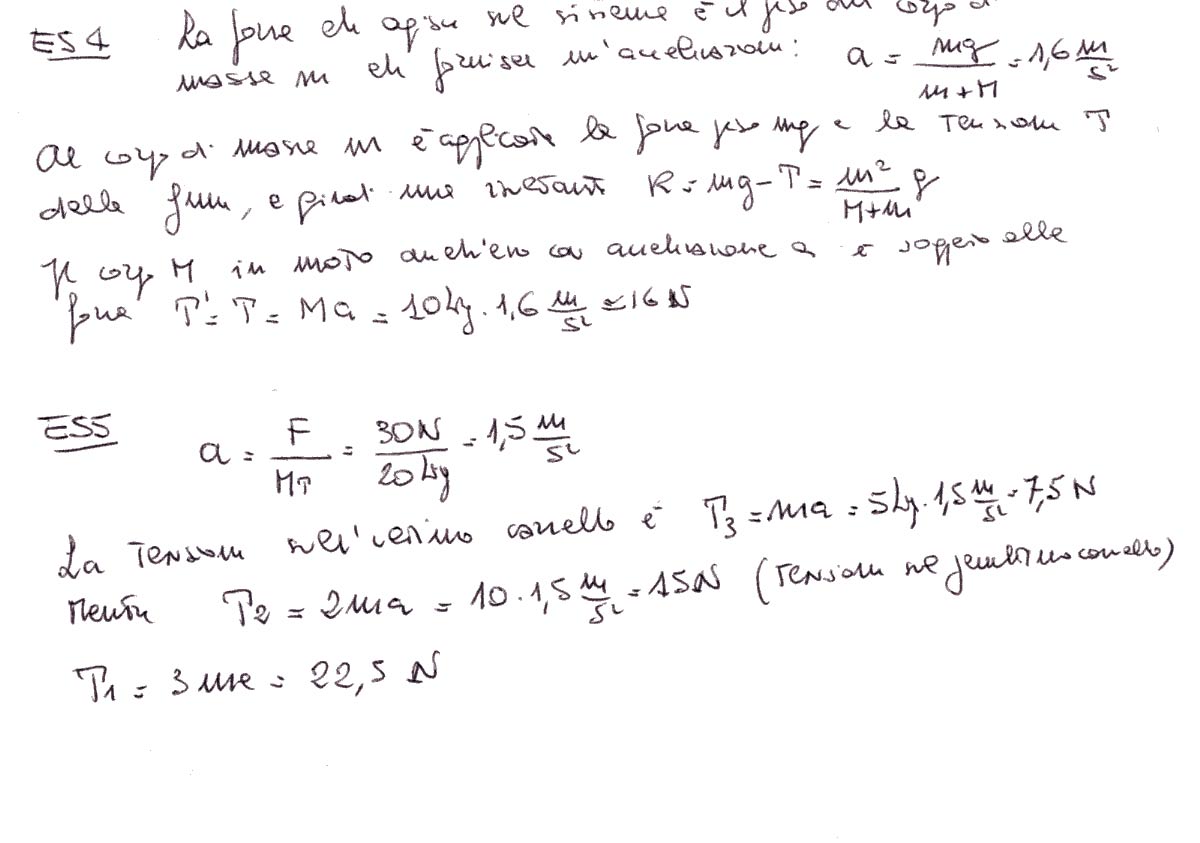 ES 4 La forza che agisce nel sistema è il peso del corpo di
massa m che fornisce un'accelerazione: a = mg / m+M = 1,6 m/s²
Al corpo di massa m è applicata la forza peso mg e la tensione T
della fune, e quindi una risultante R = mg - T = m² / M+m g
Il corpo M in moto anch'esso con accelerazione a è soggetto alla
forza T' = T = Ma = 10 kg · 1,6 m/s² ≃ 16 N
ES5 a = F / MT = 30N / 20 kg = 1,5 m/s²
La Tensione nell'ultimo carrello è T3 = ma = 5kg · 1,5 m/s² = 7,5 N
Mentre T2 = 2ma = 10 · 1,5 m/s² = 15N (Tensione nel penultimo carrello)
T1 = 3 ma = 22,5 N